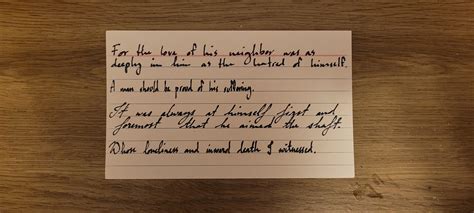 For the love of his neighbor was as
deeply in him as the hatred of himself.
A man should be proud of his suffering.
It was always at himself first and
foremost that he aimed the shaft.
Whose loneliness and inward death I witnessed.